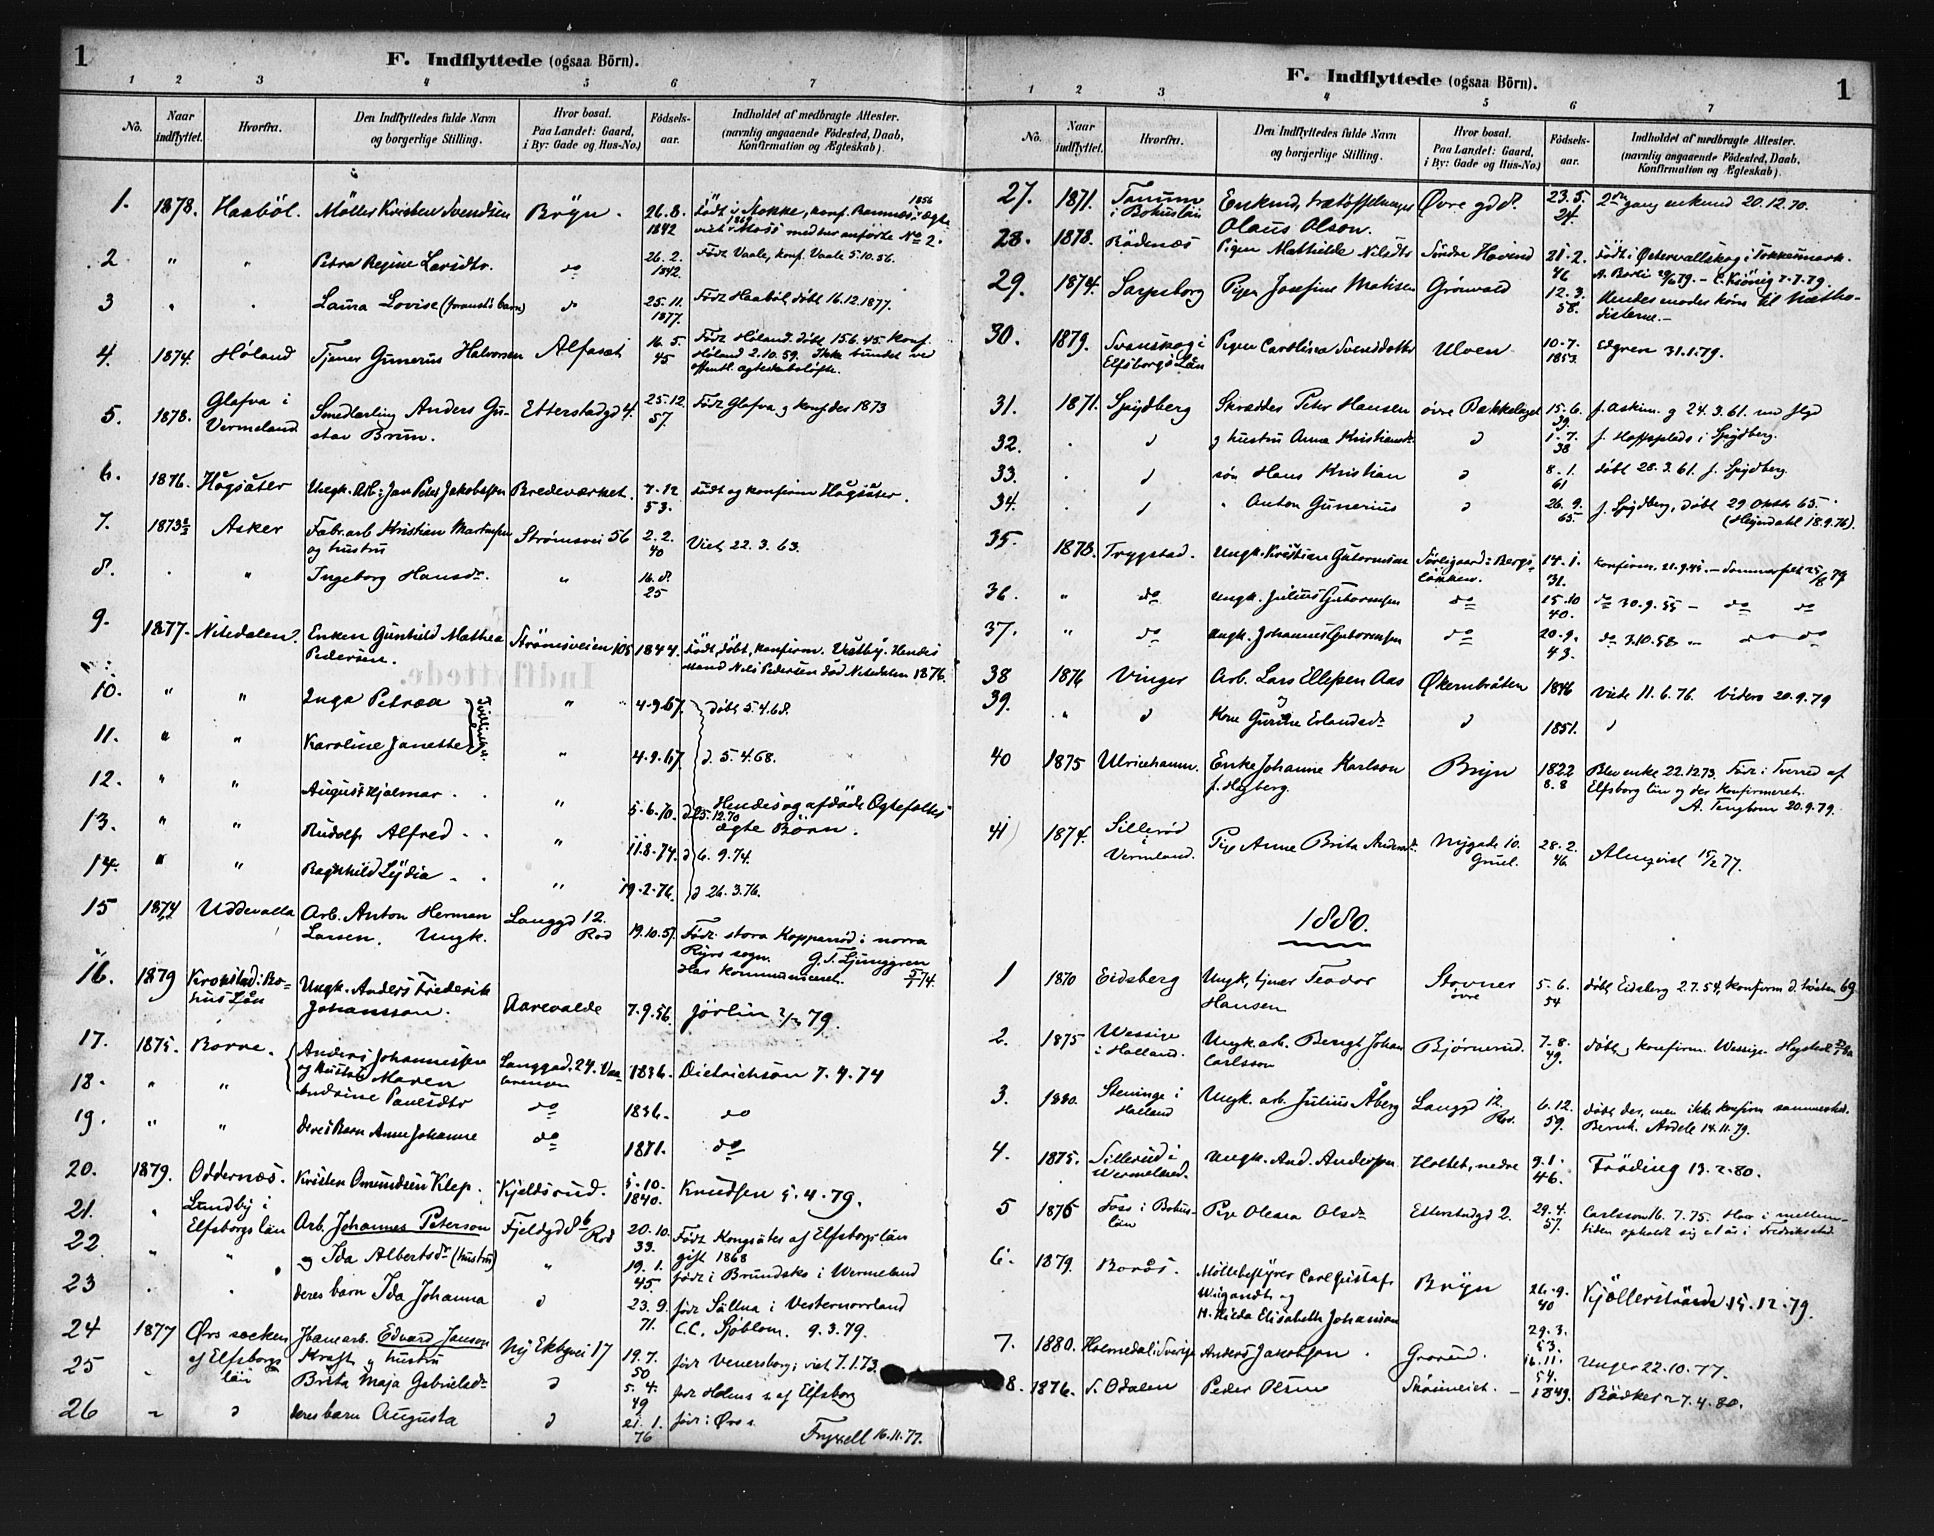 1
F. Indflyttede (ogsaa Börn).
1 2 3 4 5 6 7
No. | Naar indflyttet. | Hvorfra. | Den Indflyttedes fulde Navn og borgerlige Stilling. | Hvor bosat. Paa Landet: Gaard, i By: Gade og Hus-No.) | Födsels-aar. | Indholdet af medbragte Attester. (navnlig angaaende Födested, Daab, Konfirmation og Ægteskab).
1. 1878. Haaböl. Möller Kristen Svendsen Bryn. 26.8. 1842 Født i Stokke, konf. Ramnæs 1856
2 " " Petra Regine Larsdtr. do 26.2. 1842. Født Vaale, konf. Vaale 5.10.56.
3 " " Laura Lovise (foranst. barn) do 25.11. 1877. Født Haaböl, døbt 16.12.1877.
4. 1874. Höland Tjener Gunerus Halvorsen Alfaset 16.5. 45 Født Höland. døbt 15.6.45. Konf. Höland 2.10.59. Ikke bundet ve
offentl. ægteskabsløfte.
5. 1878. Glafva i Vermeland Smedlærling Anders Gustav Brun. Etterstadgd 4. 25.12. 57. Født Glafva og konf. der 1873
6. 1876. Högsäter Ungk. Arb. Jan Peter Jakobsson Bredeværket. 7.12 53. Født og konfirm Högsäter.
7. 1873 Asker Fabr. arb Kristian Martinsen og hustru Strømsvei 56 2.2. 40 Viet 22.3.63.
8. " Ingeborg Hansdr. " 16.8. 25
9. 1877. Nitedalen. Enken Gunhild Mathea Pedersen. Strømsveien 108 1844. Født, døbt, konfirm. Vestby. Hendes
Mand Nils Pedersen død Nitedalen 1876.
10. " " Inga Petrea Tvillinger. " 4.9.67. døbt 5.4.68.
11. " " Karoline Janette " 4.9.67. d. 5.4.68.
12. " " August Hjalmar. " 5.6.70. d 25.12.70 Hendes og afdøde Ægtefælles
ægte Börn.
13. " " Rudolf Alfred. " 11.8.74. d 6.9.74.
14. " " Ragnhild Lydia. " 19.2.76. d 26.3.76.
15 1874 Uddevalla Arb. Anton Herman Larsen. Ungk. Langgd 12. Rod 19.10.57. Født stora Kopparöd i norra
Ryrs sogn. G. S. Ljunggren
Har kommuniceret.
16. 1879 Krokstad i Bohus Län Ungk. Anders Frederik Johansson. Aarevalde 7.9.56. Jörlin 79.
17. 1875. Borre. Anders Johannessen Langgad. 24. 1836. Dietrichson 7.4.74
18. " " og hustru Maren Andrine Paulsdtr do 1836. do
19. " " deres Barn Anne Johanne do 1871. do
20. 1879. Oddernæs. Kristen Omundsen Klep. Kjeldsrud. 5.10. 1840. Knudsen 5.4.79.
21. " Lundby i Elfsborgs län Arb. Johannes Peterson Fjeldgd 8 b Rod 20.10. 33. Født Kongsäter af Elfsborgslän
gift 1868
22 " " og Ida Albertsdr (hustru) " 19.1. 45 født i Brundsko i Wermeland
23 " " deres barn Ida Johanna d 23.9. 71. født Sättna i Vesternorrland
C.C. Sjöblom. 9.3.79.
24 1877 Örs socken af Elfsborgs län Jbanearb. Edvard Janson Kraft og hustru Ny Ekbgvei 17 19.7. 50 født Venersborg; viet 7.1.73.
25 " Brita Maja Gabrielsdr d 5.4. 49 født Holms s. af Elfsborg
26 " d deres barn Augusta d 21.1. 76 født i Örs s.
Fryxell 16.11.77.
F. Indflyttede (ogsaa Börn).
1
1 2 3 4 5 6 7
No. | Naar indflyttet. | Hvorfra. | Den Indflyttedes fulde Navn og borgerlige Stilling. | Hvor bosat. Paa Landet: Gaard, i By: Gade og Hus-No.) | Födsels-aar. | Indholdet af medbragte Attester. (navnlig angaaende Födested, Daab, Konfirmation og Ægteskab).
27. 1871. Tanum i Bohuslän Enkmd, trætøffelmager Olaus Olson. Øvre gdd. 23.5. 24. 2den gang enkemd 20.12.70.
28. 1878. Rödenæs Pigen Mathilde Nilsdtr Søndre Hovind 21.2. 46 født i Østervallskog i Tokkesmark.
29. 1874. Sarpsborg Pigen Josefine Matisen Grönvold 12.3. 58. Hendes moder kom til Metho-
disterne.
30. 1879. Svanskog i Elfsborgs Län Pigen Carolina Svensdotter Ulven 10.7. 1853. Elgren 31.1.79.
31. 1871. Spydberg Skrædder Peter Hansen øvre Bækkelaget 15.6. 39. f. Askim. g 24.3.61.
32. " d og hustru Anne Kristiansdr d 1.7. 38 f. Hoffsplads i Spydberg.
33. " d søn Hans Kristian d 8.1. 61 døbt 28.3.61. f. Spydberg.
34. " d " Anton Gunerius d 26.9. 65. f. Spydberg, døbt 29 Oktbr 65.
(Heyerdahl 18.9.76).
35. 1878. Trygstad. Ungk. Kristian Gutormsen 14.1. 31. konfirm.
36. " do Ungk. Julius Gutormsen do 15.10 40. do 30.9.55 — do do
37. " do Ungk. Johannes Gutormsen do 20.9. 43. do 3.10.58 — do do
38 1876 Vinger Arb. Lars Ellefsen Aas Økernbråten 1846 viede 11.6.76. Videro 20.9.79
39. " d Kone Gurine Erlandsdr d 1851. d
40 1875 Ulricehamn. Enke Johanne Karlson f. Hegberg. Bryn 1822 8.8 Blev enke 22.12.73. Født i Tverred af
Elfsborg län og der konfirmeret.
A. Tengbom 20.9.79.
41 1874. Sillerød Vermland. Pige Anne Brita Andersdr. Nygade 10. 28.2. 46. Almqvist 77.
1880.
1 1870 Eidsberg Ungk, tjener Teodor Hansen Stovner øvre 5.6. 54 døbt Eidsberg 2.7.54, konfirm d. høsten 69.
2. 1875 Wessige i Halland. Ungk. arb. Bengt Johan Carlsson Bjørnerud. 7.8. 49. døbt og konfirm. Wessige.
3. 1880. Steninge i Halland Ungk. arb. Julius Åberg Langgd 12. Rod. 6.12. 59. døbt der, men ikke konfirm sammesteds.
14.11.79.
4. 1875. Sillerud i Wermeland. Ungk. And. Andersson Holtet, nedre 9.1. 46. Fröding 13.2.80.
5 1876 Foss i Bohuslän Pige Olena Olsdr Etterstadgd 2. 29.4. 57. Carlsson 16.7.75. Har i mellem-
tiden opholdt sig et år i Fredriksstad.
6. 1879. Borås. Möllebestyrer Carl Gustaf Wigandt og H. Hilda Elisabeth Johanson Bryn 26.9. 40 29.3. 53. Kjøllerström 15.12.79.
7. 1880. Holmedal i Sverige Anders Jakobsson. Grorud. 16.11. 54. Unger 22.10.77.
8. 1876. S. Odalen Peder Olsen — 1849. Bödker 7.4.80.